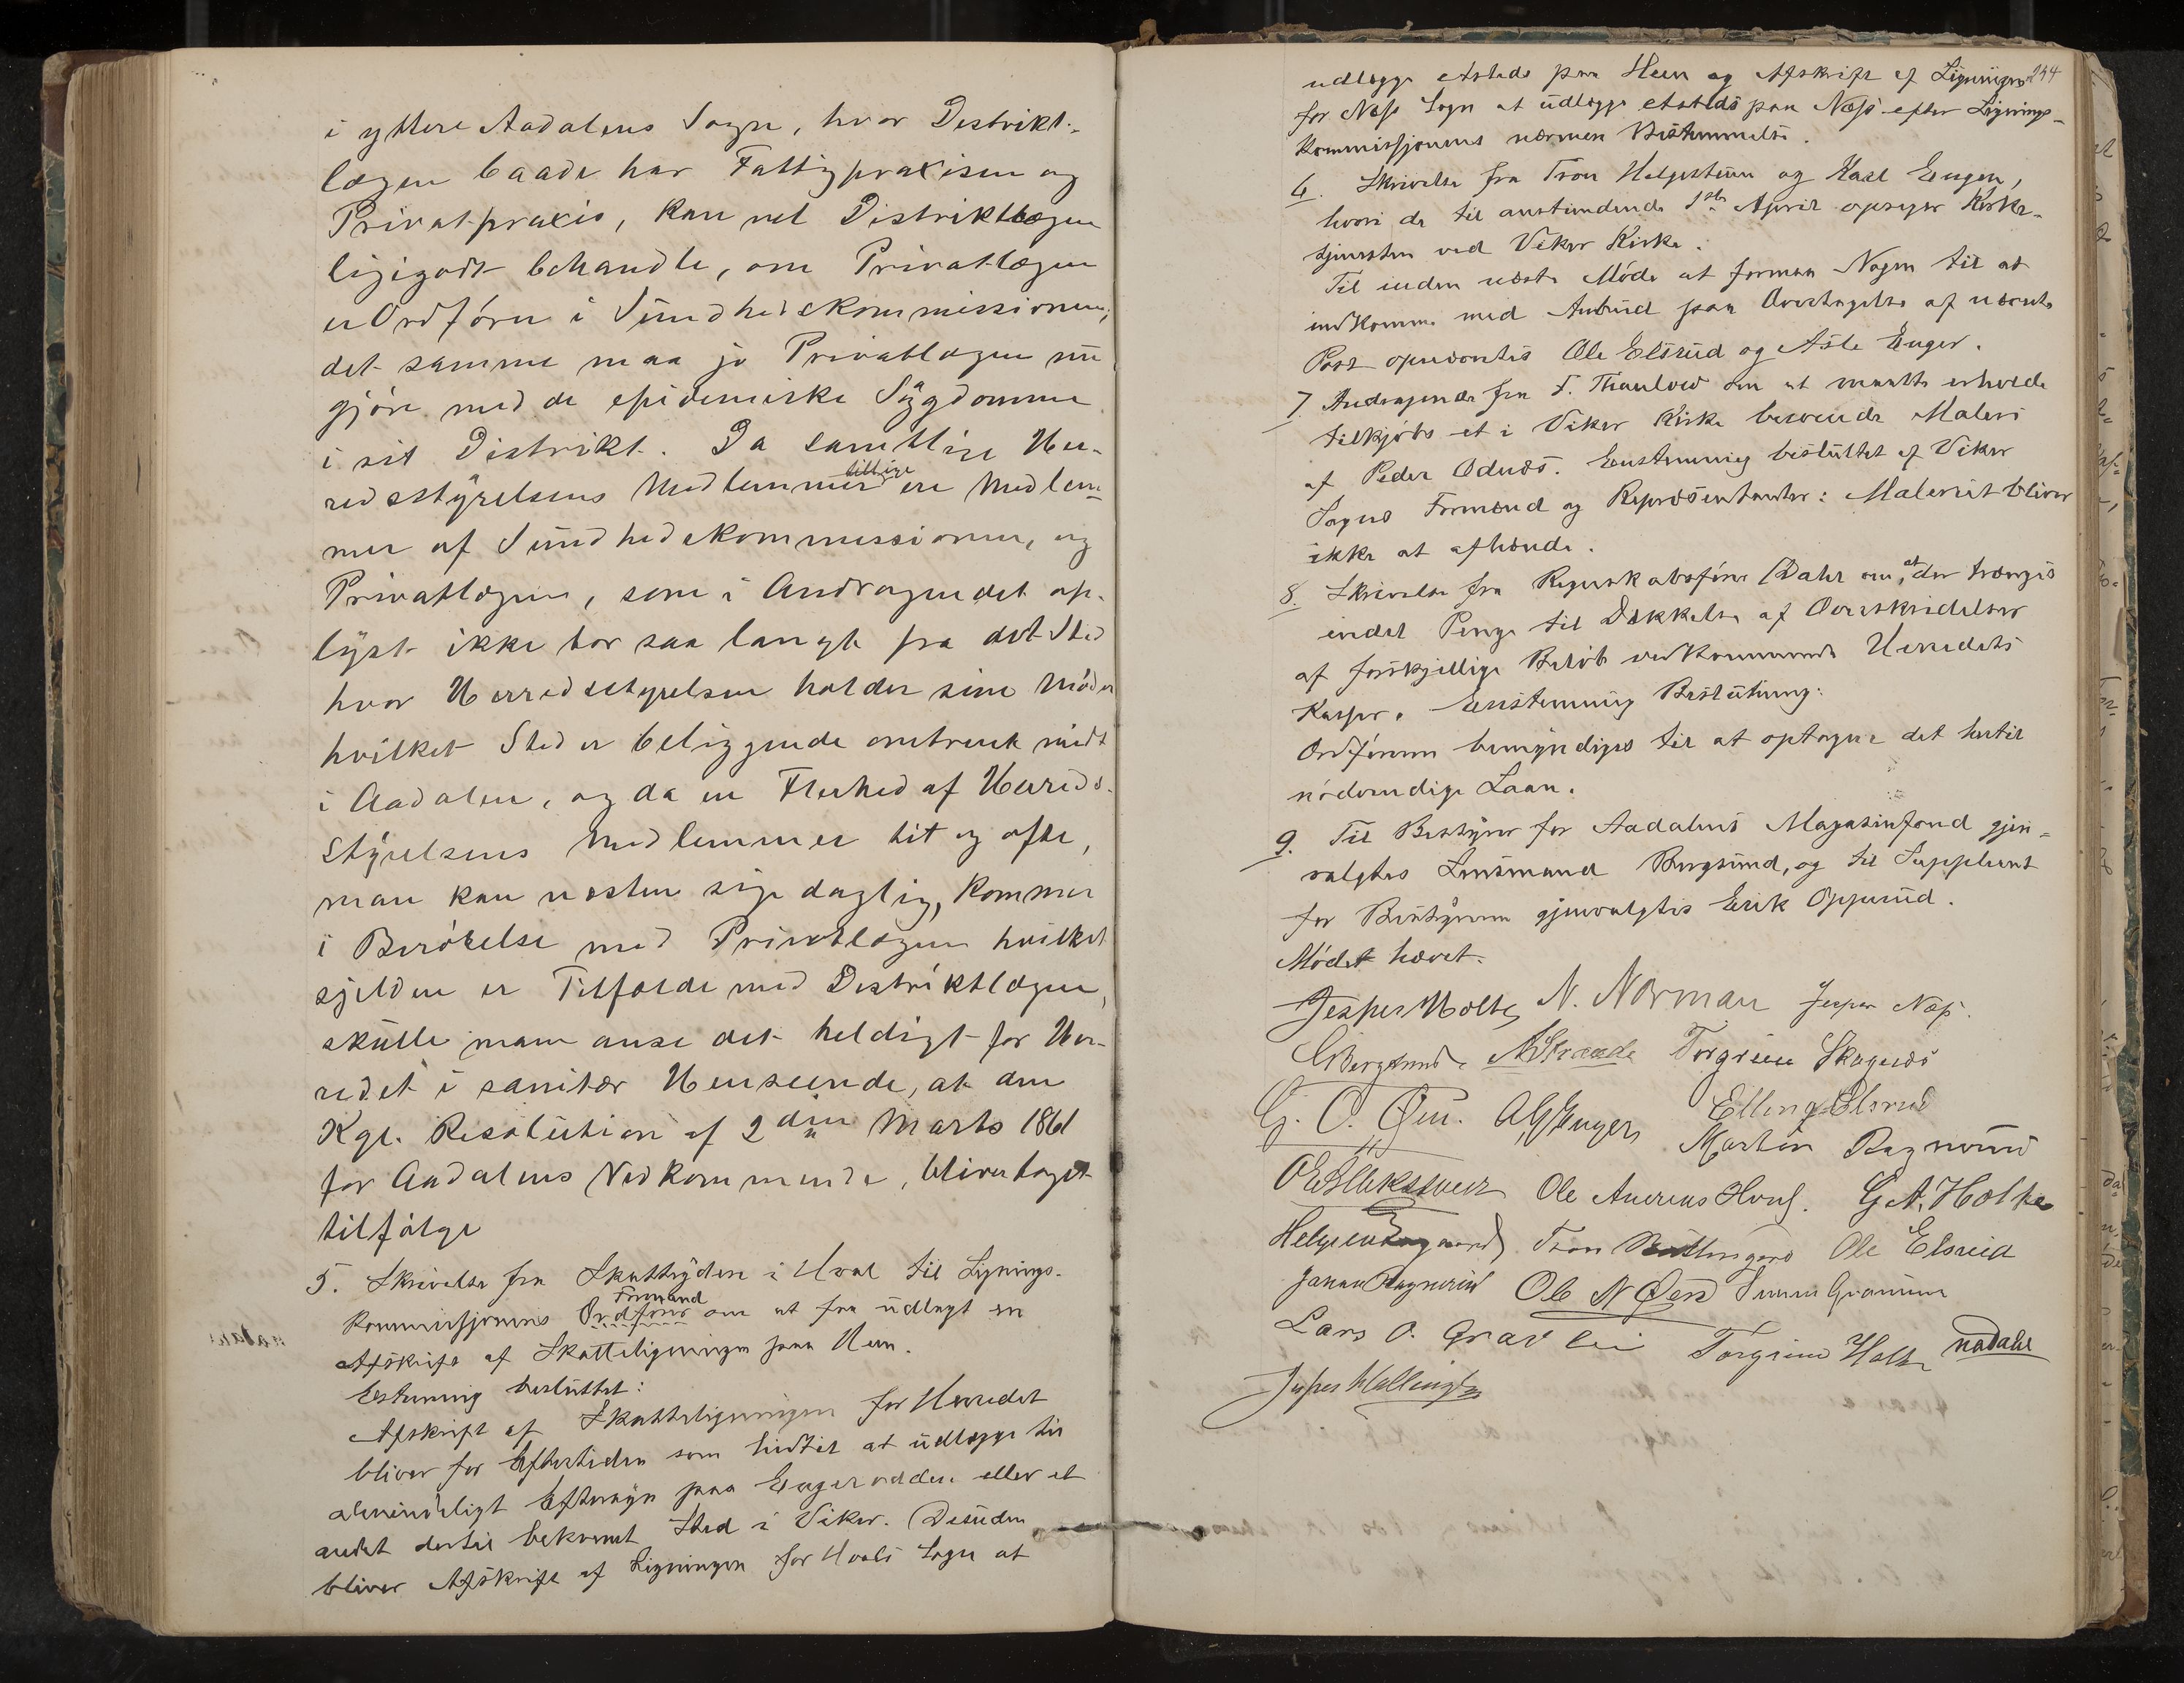 i yttere Aadalens Sogn, hvor Distrikt-
lægen baade har Fattigpraxisen og
Privatpraxis, kan vel Distriktlægen
ligegodt behandle, om Privatlægen
er Ordfører i Sundhedskommissionen,
det samme maa jo Privatlægen nu
gjøre med de epidemiske Sygdomme
i sit Distrikt. Da samtlige Her-
redsstyrelsens Medlemmer tillige ere Medlem-
mer af Sundhedskommissionen, og
Privatlægen, som i Andragendet op-
lyst ikke bor saa langt fra det Sted
hvor Herredsstyrelsen holder sine Møder
hvilket Sted er beliggende omtrent midt
i Aadalen, og da en Flerhed af Herreds-
Styrelsens Medlemmer tit og ofte,
man kan næsten sige daglig, kommer
i Berørelse med Privatlægen hvilket
sjelden er Tilfælde med Distriktlægen,
skulle man anse det heldigt for Her-
redet i sanitær Henseende, at den
Kgl. Resolution af 2den Marts 1861
for Aadalens Vedkommende, bliver taget
tilfølge
5. Skrivelse fra Skatteydere i Hval til Lignings-
kommissjonens Ordfører Formand om at faa udlagt en
Afskrift af Skatteligningen paa Hen.
Enstemmig besluttet:
Afskrift af Skatteligningen for Herredet
bliver for Eftertiden som hidtil at udlægge til
almindeligt Eftersyn paa Engerodden eller et
andet dertil bekvemt Sted i Viker. Desuden
bliver Afskrift af Ligningen for Hvals Sogn at
244
udlægge etsteds paa Heen og Afskrift af Ligningen
for Næs Sogn at udlægge etsteds paa Næs efter Lignings-
kommissjonens nærmere Bestemmelse.
6. Skrivelse fra Tron Helgesteen og Karl Engen,
hvori de til anstundende 1ste April opsiger Kirke-
tjenesten ved Viker Kirke.
Til inden næste Møde at formaa Nogen til at
indkomme med Anbud paa Overtagelse af nævnte
Post opnævntes Ole Elsrud og Asle Enger.
7. Andragende fra F. Thaulow om at maatte erholde
tilkjøbs et i Viker Kirke beroende Maleri
af Peder Odnæs. Enstemmig besluttet af Viker
Sogns Formænd og Repræsentanter: Maleriet bliver
ikke at afhænde.
8. Skrivelse fra Regnskabsfører Dahl om, at der trænges
endel Penge til Dækkelse af Overskridelser
af forskjellige Beløb vedkommende Herredets
Kasser. Enstemmig Beslutning:
Ordføreren bemyndiges til at optage det hertil
nødvendige Laan.
9. Til Bestyrer for Aadalens Magasinfond gjen-
valgtes Lensmand Bergsund, og til Suppleant
for Bestyreren gjenvalgtes Erik Opperud.
Mødet hævet.
Jesper Holte N. Norman Jesper Næs.
Bergsund AStrande Torgrim Skagnæs
G. O. Øen. AGEnger Elling Elsrud
Marten Ragnvrud
Ole Andreas Hval. G. A. Holte
Ole Elsrud
Ole N Øen
Lars O. Gravlei Torgrim Holte nadahl
Jesper Hallingby